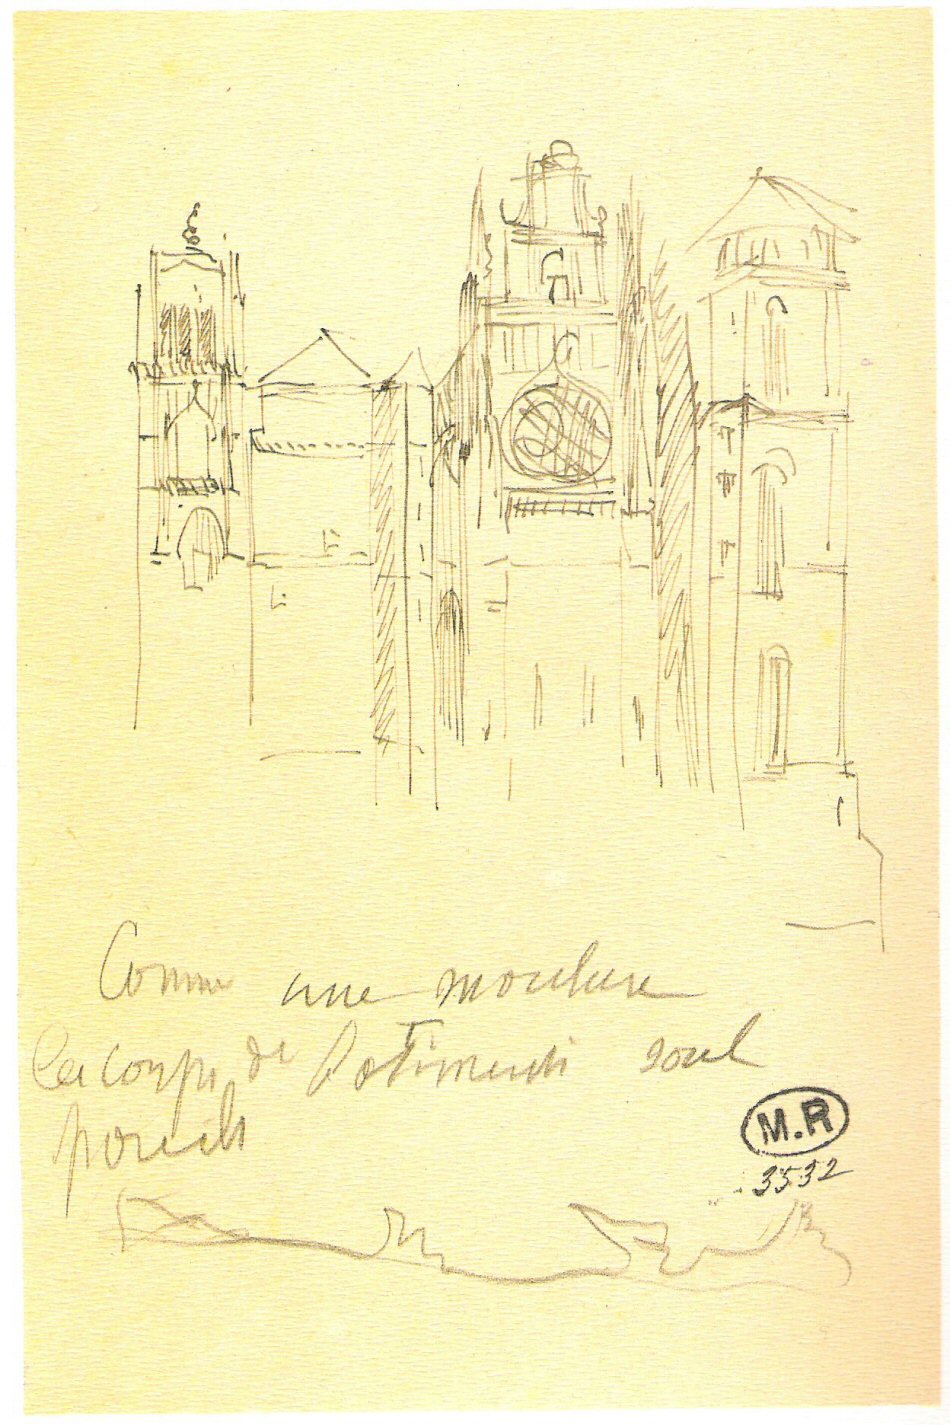 Comme une moulure
les corps de batiments sont
pareils
M.R
3532